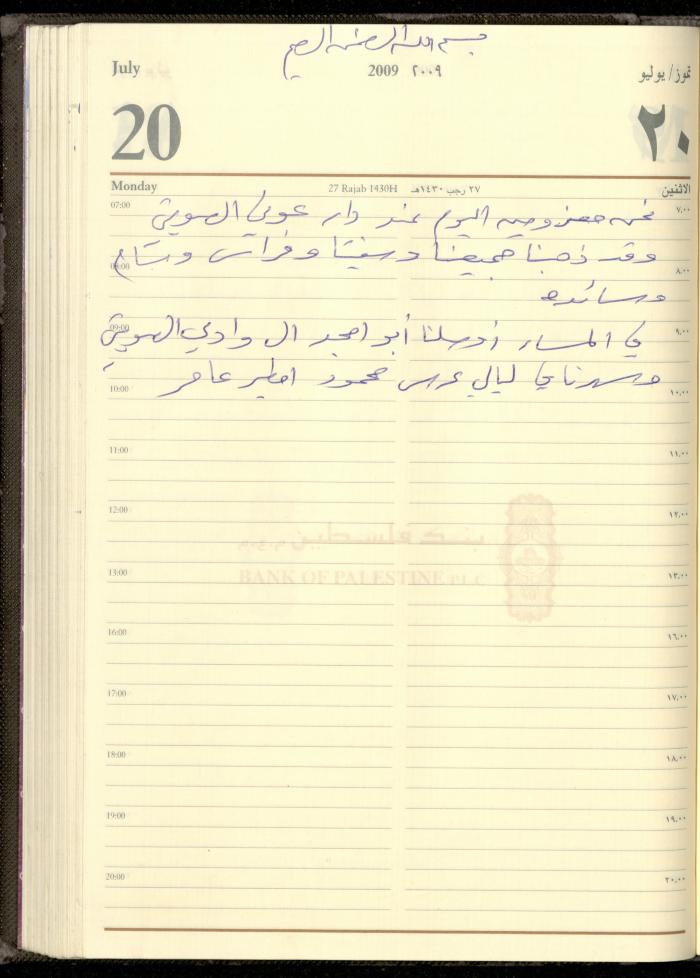 بسم الله الرحمن الرحيم
July 2009 ٢٠٠٩ تموز/ يوليو
20 ٢٠
Monday 27 Rajab 1430H ٢٧ رجب ١٤٣٠هـ الاثنين
07:00 نحن معزومين اليوم عند دار عوني الهويتي ٧,٠٠
وقد ذهبنا جميعنا وسفيتا وفراس ووسام
08:00 ٨,٠٠
وسائده
09:00 في المساء أوصلنا أبو امجد ال وادي الهويتي ٩,٠٠
وسهرنا في ليالي عرس محمود امطير عامر
10:00 ١٠,٠٠
11:00 ١١,٠٠
12:00 ١٢,٠٠
بنك فلسطين
BANK OF PALESTINE PLC
13:00 ١٣,٠٠
16:00 ١٦,٠٠
17:00 ١٧,٠٠
18:00 ١٨,٠٠
19:00 ١٩,٠٠
20:00 ٢٠,٠٠